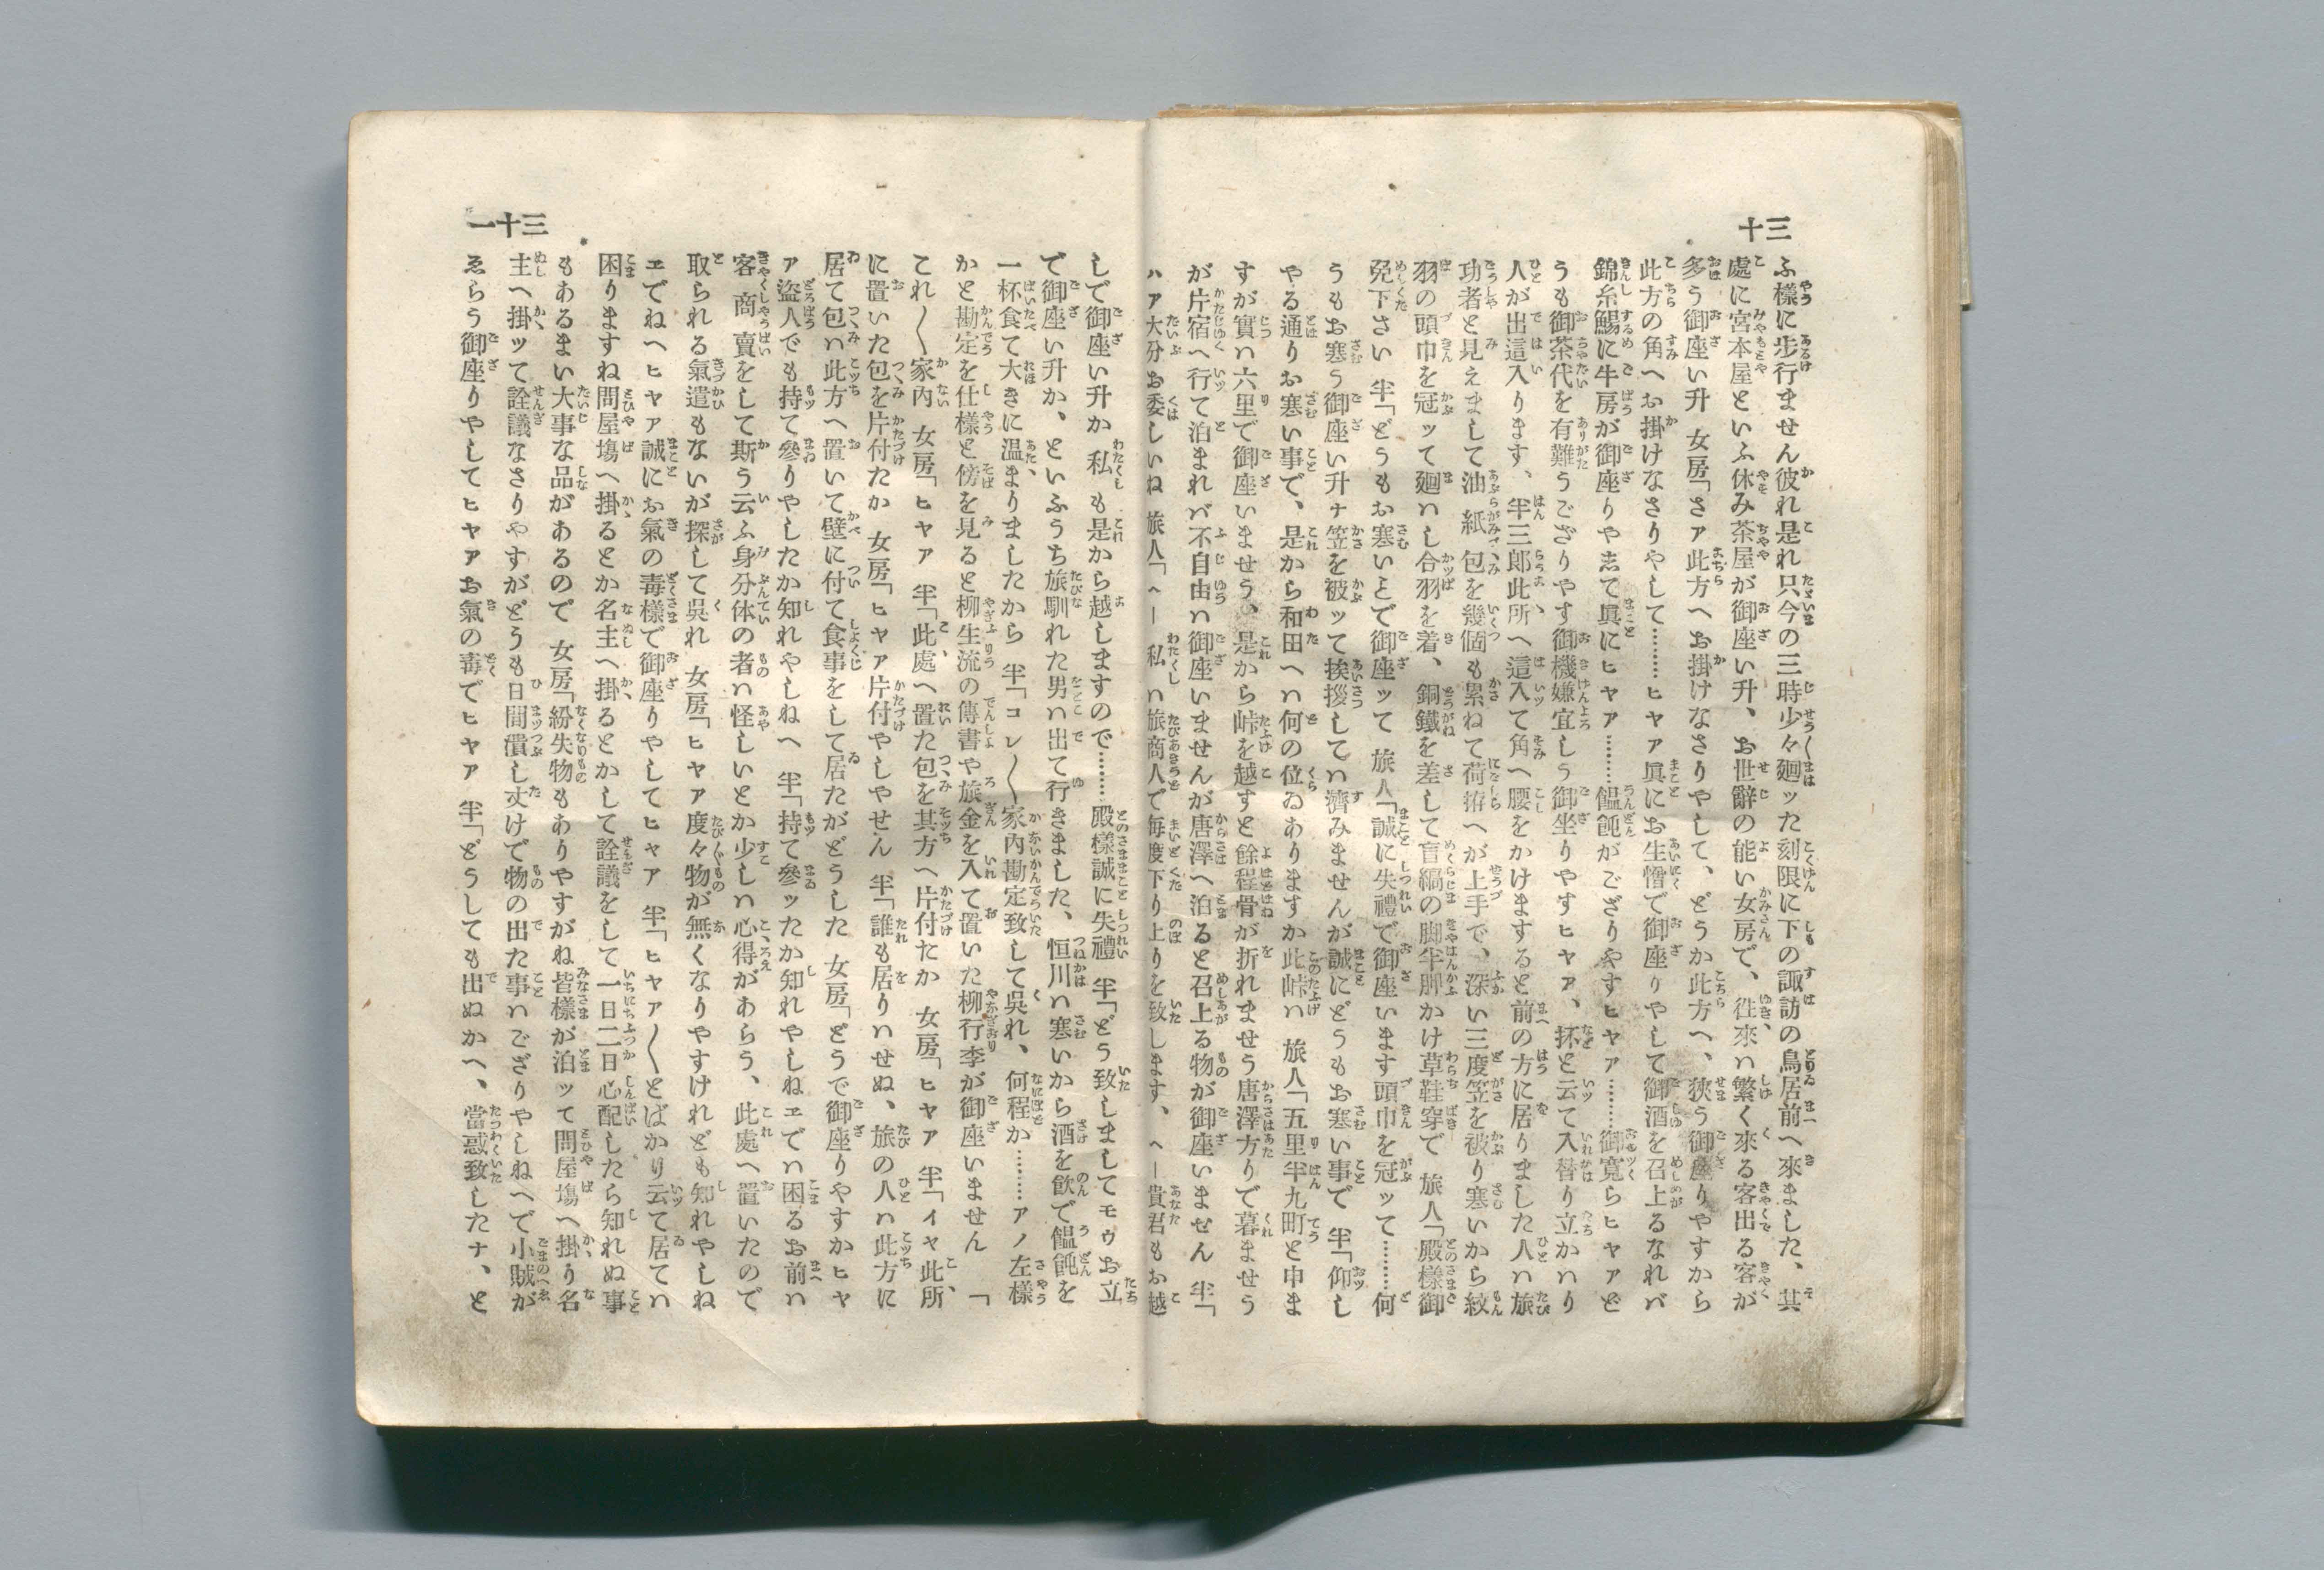 三十
ふ樣に歩行ません彼れ是れ只今の三時少々廻ッた刻限に下の諏訪の鳥居前へ來ました、其
處に宮本屋といふ休み茶屋が御座い升、お世辭の能い女房で、徃來ハ繁く來る客出る客が
多う御座い升　女房「さア此方へお掛けなさりやして、どうか此方へ、狹う御座りやすから
此方の角へお掛けなさりやして………ヒヤア眞にお生憎で御座りやして御酒を召上るなれバ
錦糸鯣に牛房が御座りや志て眞にヒヤア………饂飩がござりやすヒヤア………御寛らヒヤアど
うも御茶代を有難うござりやす御機嫌宜しう御坐りやすヒヤア、抔と云て入替り立かハり
人が出這入ります、半三郎此所へ這入て角へ腰をかけますると前の方に居りました人ハ旅
功者と見えまして油紙包を幾個も累ねて荷拵へが上手で、深い三度笠を被り寒いから紋
羽の頭巾を冠ッて廻ハし合羽を着、銅鐵を差して盲縞の脚半脚かけ草鞋穿で　旅人「殿樣御
免下さい　半「どうもお寒いとで御座ッて　旅人「誠に失禮で御座います頭巾を冠ッて………何
うもお寒う御座い升ナ笠を被ッて挨拶してハ濟みませんが誠にどうもお寒い事で　半「仰し
やる通りお寒い事で、是から和田へハ何の位ゐありますか此峠ハ　旅人「五里半九町と申ま
すが實ハ六里で御座いませう、是から峠を越すと餘程骨が折れませう唐澤方りで暮ませう
が片宿へ行て泊まれバ不自由ハ御座いませんが唐澤へ泊ると召上る物が御座いません　半「
ハア大分お委しいね　旅人「ヘー私ハ旅商人で毎度下り上りを致します、ヘー貴君もお越
三十一
しで御座い升か私も是から越しますので………殿樣誠に失禮　半「どう致しましてモウお立
で御座い升か、といふうち旅馴れた男ハ出て行きました、恒川ハ寒いから酒を飮で饂飩を
一杯食て大きに温まりましたから　半「コレ〳〵家内勘定致して呉れ、何程か………アノ左樣
かと勘定を仕樣と傍を見ると柳生流の傳書や旅金を入て置いた柳行李が御座いません　「
これ〳〵家内　女房「ヒヤア　半「此處へ置た包を其方へ片付たか　女房「ヒヤア　半「イヤ此所
に置いた包を片付たか　女房「ヒヤア片付やしやせん　半「誰も居りハせぬ、旅の人ハ此方に
居て包ハ此方へ置いて壁に付て食事をして居たがどうした　女房「どうで御座りやすかヒヤ
ア盜人でも持て參りやしたか知れやしねへ　半「持て參ッたか知れやしねヱでハ困るお前ハ
客商賣をして斯う云ふ身分体の者ハ怪しいとか少しハ心得があらう、此處へ置いたので
取られる氣遣もないが探して呉れ　女房「ヒヤア度々物が無くなりやすけれども知れやしね
ヱでねへヒヤア誠にお氣の毒樣で御座りやしてヒヤア　半「ヒヤア〳〵とばかり云て居てハ
困りますね問屋塲へ掛るとか名主へ掛るとかして詮議をして一日二日心配したら知れぬ事
もあるまい大事な品があるので　女房「紛失物もありやすがね皆樣が泊ッて問屋塲へ掛り名
主へ掛ッて詮議なさりやすがどうも日間潰し丈けで物の出た事ハござりやしねへで小賊が
ゑらう御座りやしてヒヤアお氣の毒でヒヤア　半「どうしても出ぬかへ、當惑致したナ、と